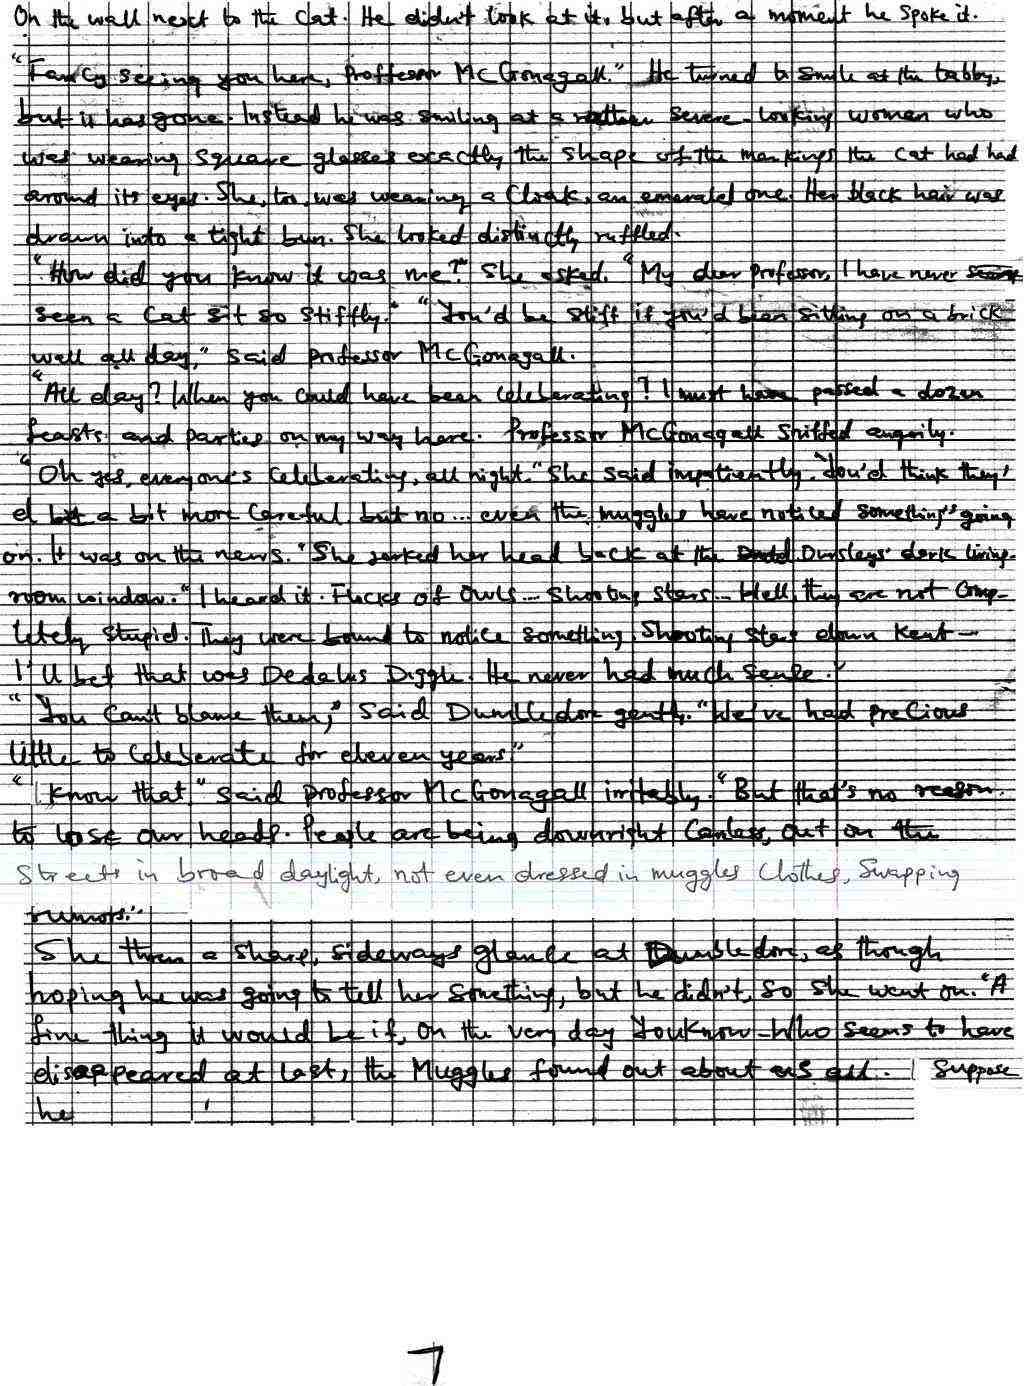 On the wall next to the cat. He didn't look at it, but after a moment he spoke it.
"Fancy seeing you here, Proffessor McGonagall." He turned to smile at the tabby,
but it has gone. Instead he was smiling at a rather severe-looking woman who
was wearing square glasses exactly the shape of the markings the cat had had
around its eyes. She, too, was wearing a cloak, an emerald one. Her black hair was
drawn into a tight bun. She looked distinctly ruffled.
"How did you know it was me?" She asked. "My dear professor, I have never
seen a cat sit so stiffly." "You'd be stiff if you'd been sitting on a brick
wall all day," said professor McGonagall.
"All day? When you could have been celeberating? I must have passed a dozen
feasts and parties on my way here. Professor McGonagall sniffed angrily.
"Oh yes, everyone's celeberating, all night." She said impatiently. "You'd think they'
d be a bit more careful, but no... even the muggles have noticed something's going
on. It was on the news." She jerked her head back at the Dursleys' dark living-
room window. "I heard it. Flocks of owls... shooting stars... Well, they are not comp-
letely stupid. They were bound to notice something. Shooting stars down Kent —
I'll bet that was Dedalus Diggle. He never had much sense."
"You can't blame them," said Dumbledore gently. "We've had precious
little to celeberate for eleven years"
"I know that," said professor McGonagall irritably. "But that's no reason
to lose our heads. People are being downright careless, out on the
streets in broad daylight, not even dressed in muggles clothes, swapping
rumors."
She threw a sharp, sideways glance at Dumbledore, as though
hoping he was going to tell her something, but he didn't, so she went on. "A
fine thing it would be if, on the very day YouKnow-Who seems to have
disappeared at last, the Muggles found out about us all. I suppose
he
7